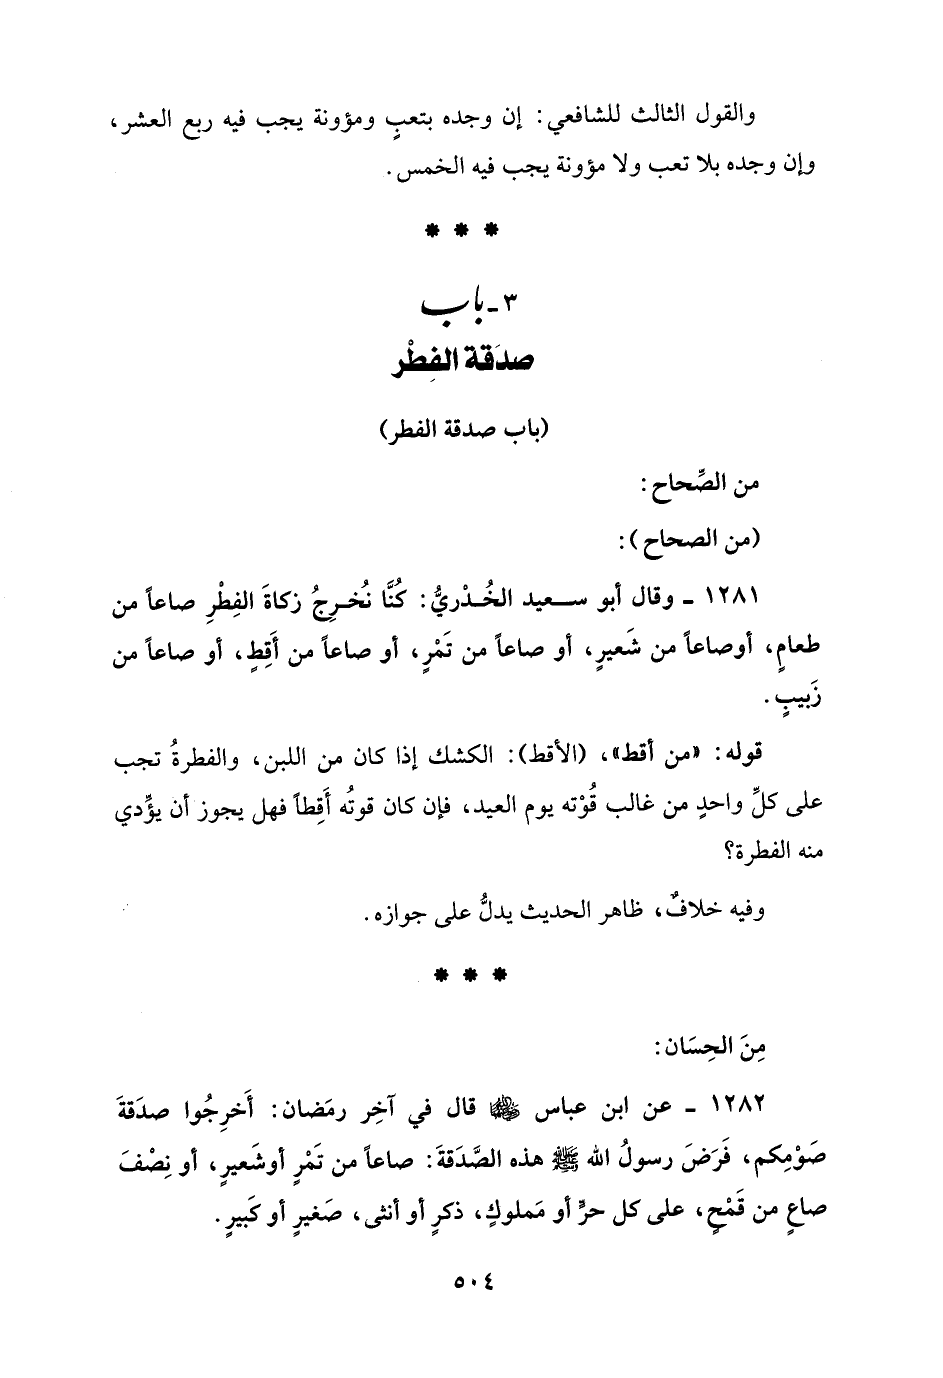 والقول الثالث للشافعي: إن وجده بتعبٍ ومؤونة يجب فيه ربع العشر،
وإن وجده بلا تعب ولا مؤونة يجب فيه الخمس.
* * *
٣ - باب
صدَقة الفِطْر
(باب صدقة الفطر)
من الصِّحاح:
(من الصحاح):
١٢٨١ - وقال أبو سعيد الخُدْريُّ: كُنَّا نُخرِجُ زكاةَ الفِطْرِ صاعاً من
طعامٍ، أوصاعاً من شَعيرٍ، أو صاعاً من تَمْرٍ، أو صاعاً من أَقِطٍ، أو صاعاً من
زَبيبٍ.
قوله: «من أقط»، (الأقط): الكشك إذا كان من اللبن، والفطرةُ تجب
على كلِّ واحدٍ من غالب قُوْته يوم العيد، فإن كان قوتُه أَقِطاً فهل يجوز أن يؤِّدي
منه الفطرة؟
وفيه خلافٌ، ظاهر الحديث يدلُّ على جوازه.
* * *
مِنَ الحِسَان:
١٢٨٢ - عن ابن عباس ﵄ قال في آخِر رمَضان: أَخرِجُوا صدَقةَ
صَوْمِكم، فَرَضَ رسولُ الله ﷺ هذه الصَّدَقةَ: صاعاً من تَمْرٍ أوشَعيرٍ، أو نِصْفَ
صاعٍ من قَمْحٍ، على كل حرٍّ أو مَملوكٍ، ذكرٍ أو أنثى، صَغيرٍ أو كَبيرٍ.
٥٠٤